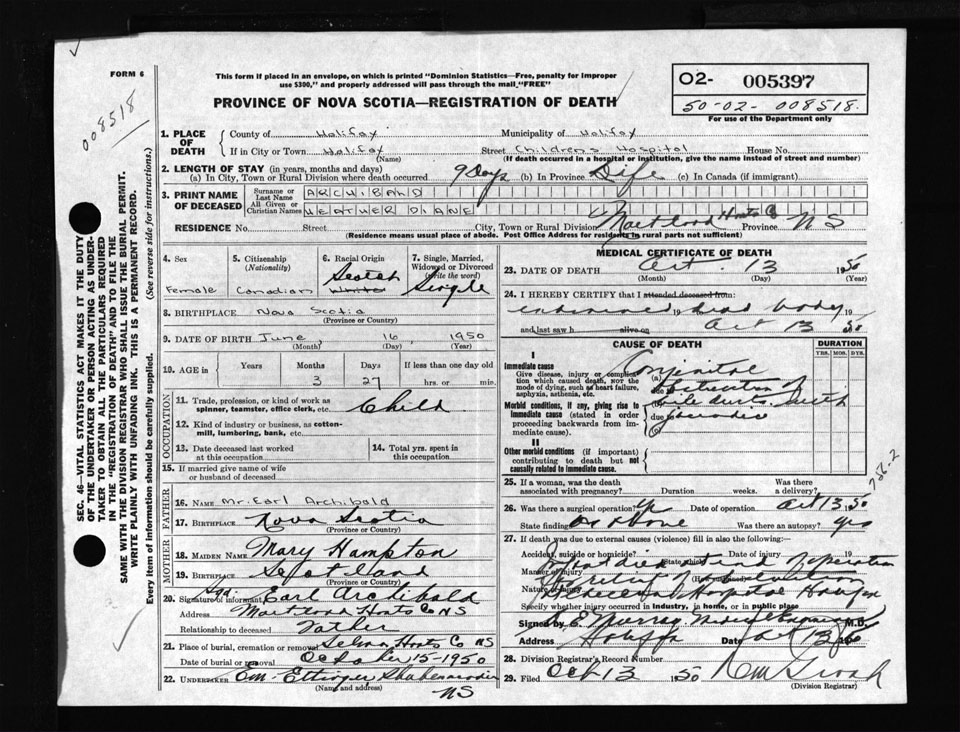 FORM 6
008518
This form if placed in an envelope, on which is printed "Dominion Statistics—Free, penalty for improper
use $300," and properly addressed will pass through the mail "FREE"
PROVINCE OF NOVA SCOTIA—REGISTRATION OF DEATH
O2- 005397
50-02- 008518.
For use of the Department only
SEC. 46—VITAL STATISTICS ACT MAKES IT THE DUTY
OF THE UNDERTAKER OR PERSON ACTING AS UNDER-
TAKER TO OBTAIN ALL THE PARTICULARS REQUIRED
IN THE "REGISTRATION OF DEATH" AND TO FILE THE
SAME WITH THE DIVISION REGISTRAR WHO SHALL ISSUE THE BURIAL PERMIT.
WRITE PLAINLY WITH UNFADING INK. THIS IS A PERMANENT RECORD.
Every item of information should be carefully supplied. (See reverse side for instructions.)
1. PLACE OF DEATH
County of Halifax Municipality of Halifax
If in City or Town Halifax Street Children's Hospital House No.
(Name) (If death occurred in a hospital or institution, give the name instead of street and number)
2. LENGTH OF STAY (in years, months and days)
(a) In City, Town or Rural Division where death occurred 9 Days (b) In Province Life (c) In Canada (if immigrant)
3. PRINT NAME OF DECEASED
Surname or Last Name ARCHIBALD
All Given or Christian Names HEATHER DIANE
RESIDENCE No. Street City, Town or Rural Division Maitland Hants Co Province NS
(Residence means usual place of abode. Post Office Address for residents in rural parts not sufficient)
4. Sex Female
5. Citizenship (Nationality) Canadian
6. Racial Origin Scotch White
7. Single, Married, Widowed or Divorced (Write the word) Single
8. BIRTHPLACE Nova Scotia
(Province or Country)
9. DATE OF BIRTH June 16 1950
(Month) (Day) (Year)
10. AGE in Years Months 3 Days 27 If less than one day old hrs. or min.
OCCUPATION
11. Trade, profession, or kind of work as spinner, teamster, office clerk, etc. Child
12. Kind of industry or business, as cotton-mill, lumbering, bank, etc.
13. Date deceased last worked at this occupation
14. Total yrs. spent in this occupation
15. If married give name of wife or husband of deceased
FATHER
16. NAME Mr. Earl Archibald
17. BIRTHPLACE Nova Scotia
(Province or Country)
MOTHER
18. MAIDEN NAME Mary Hampton
19. BIRTHPLACE Scotland
(Province or Country)
20. Signature of informant Sgd. Earl Archibald
Address Maitland Hants Co NS
Relationship to deceased Father
21. Place of burial, cremation or removal Selma Hants Co NS
Date of burial or removal October 15-1950
22. UNDERTAKER Em Ettinger Shubenacadie
(Name and address) NS
MEDICAL CERTIFICATE OF DEATH
23. DATE OF DEATH Oct. 13 1950
(Month) (Day) (Year)
24. I HEREBY CERTIFY that I attended deceased from:
examined 19 dead body 19
and last saw h alive on Oct 13 50
CAUSE OF DEATH
DURATION
YRS. MOS. DYS.
I
Immediate cause
Give disease, injury or complication which caused death, NOT the mode of dying, such as heart failure, asphyxia, asthenia, etc.
(a) Congenital
obstruction of
Morbid conditions, if any, giving rise to immediate cause (stated in order proceeding backwards from immediate cause).
bile ducts with
due jaundice
II
Other morbid conditions (if important) contributing to death but not causally related to immediate cause.
25. If a woman, was the death associated with pregnancy? Duration weeks. Was there a delivery?
756.2
26. Was there a surgical operation? Yes Date of operation Oct 13 50
State finding As above Was there an autopsy? yes
27. If death was due to external causes (violence) fill in also the following:
Accident, suicide or homicide? Date of injury 19
(State which)
Infant died operation
Manner of injury
Nature of injury
Hospital Halifax
Specify whether injury occurred in industry, in home, or in public place
Signed by E. Murray Medical Examiner M.D.
Address Halifax Date Oct 13 50
28. Division Registrar's Record Number
29. Filed Oct 13 1950
(Division Registrar)